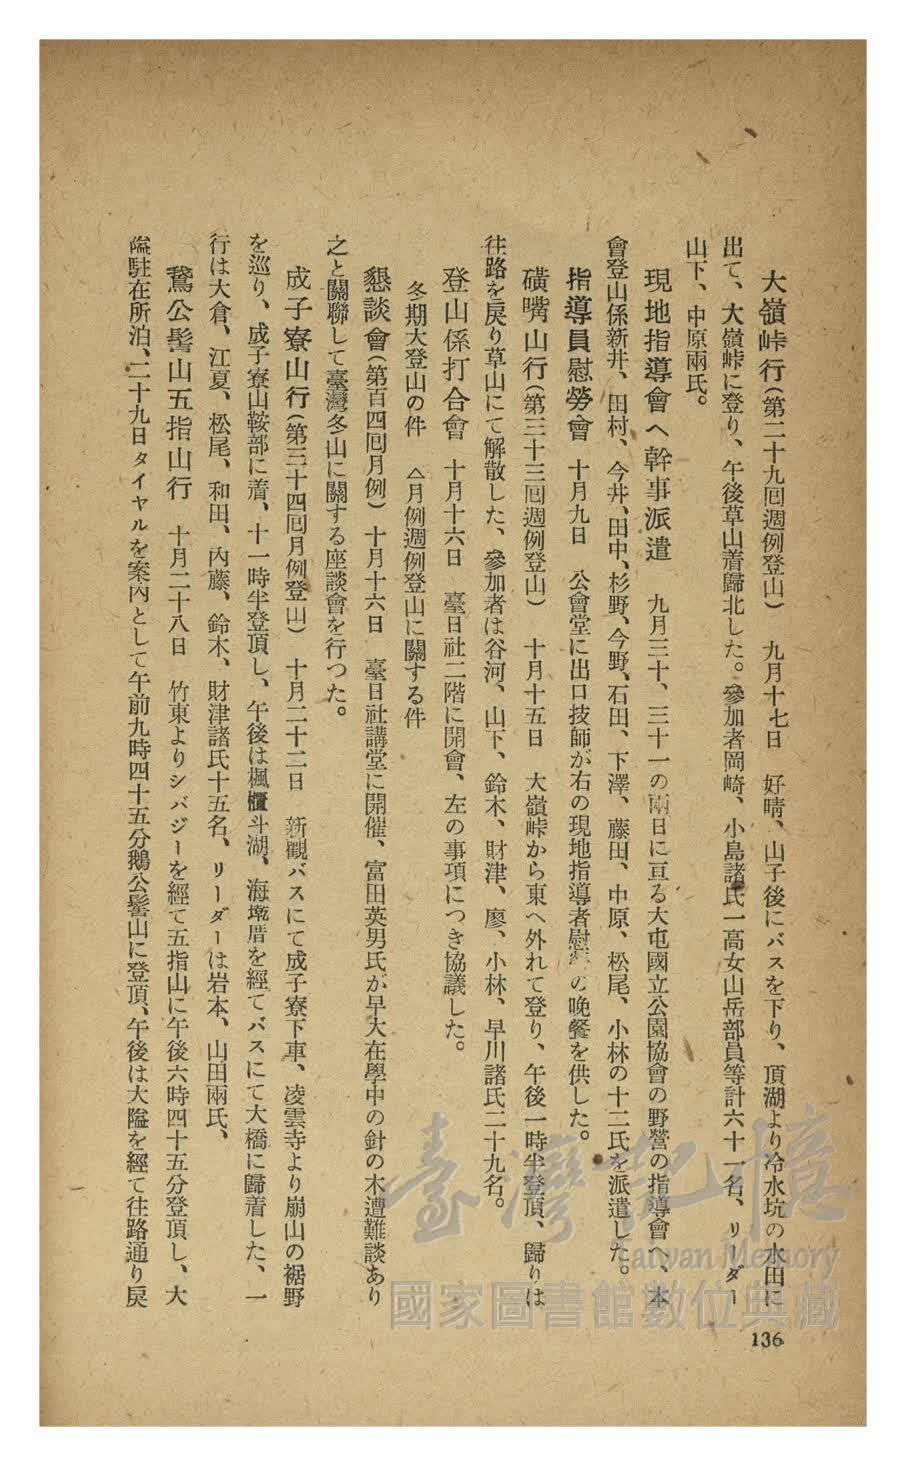 大嶺峠行(第二十九囘週例登山) 九月十七日 好晴、山子後にバスを下り、頂湖より冷水坑の水田に
出て、大嶺峠に登り、午後草山着歸北した。參加者岡崎、小島諸氏一高女山岳部員等計六十一名、リーダー
山下、中原兩氏。
現地指導會へ幹事派遣 九月三十、三十一の兩日に亘る大屯國立公園協會の野營の指導會へ、本
會登山係新井、田村、今井、田中、杉野、今野、石田、下澤、藤田、中原、松尾、小林の十二氏を派遣した。
指導員慰勞會 十月九日 公會堂に出口技師が右の現地指導者慰勞の晩餐を供した。
磺嘴山行(第三十三囘週例登山) 十月十五日 大嶺峠から東へ外れて登り、午後一時半登頂、歸りは
往路を戻り草山にて解散した、參加者は谷河、山下、鈴木、財津、廖、小林、早川諸氏二十九名。
登山係打合會 十月十六日 臺日社二階に開會、左の事項につき協議した。
冬期大登山の件 △月例週例登山に關する件
懇談會(第百四囘月例) 十月十六日 臺日社講堂に開催、富田英男氏が早大在學中の針の木遭難談あり
之と關聯して臺灣冬山に關する座談會を行つた。
成子寮山行(第三十四囘月例登山) 十月二十二日 新觀バスにて成子寮下車、凌雲寺より崩山の裾野
を巡り、成子寮山鞍部に着、十一時半登頂し、午後は楓櫃斗湖、海墘厝を經てバスにて大橋に歸着した、一
行は大倉、江夏、松尾、和田、內藤、鈴木、財津諸氏十五名、リーダーは岩本、山田兩氏、
鵞公髻山五指山行 十月二十八日 竹東よりシバジーを經て五指山に午後六時四十五分登頂し、大
隘駐在所泊、二十九日タイヤルを案內として午前九時四十五分鵝公髻山に登頂、午後は大隘を經て往路通り戾
136
臺灣記憶
Taiwan Memory
國家圖書館數位典藏